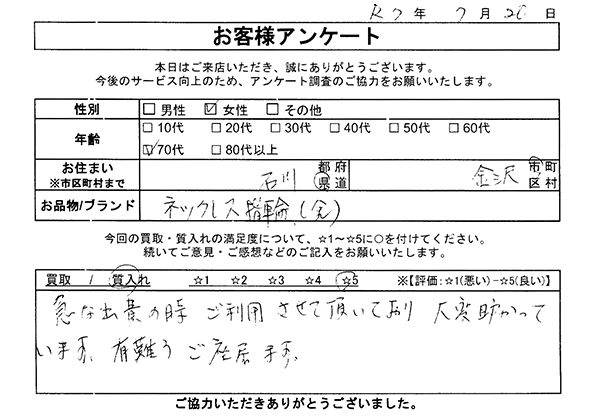 R7年 7月 20日
お客様アンケート
本日はご来店いただき、誠にありがとうございます。
今後のサービス向上のため、アンケート調査のご協力をお願いいたします。
性別 □男性 ☑女性 □その他
年齢 □10代 □20代 □30代 □40代 □50代 □60代
☑70代 □80代以上
お住まい ※市区町村まで 石川 都府県道 金沢 市町区村
お品物/ブランド ネックレス指輪(金)
今回の買取・質入れの満足度について、☆1～☆5に○を付けてください。
続いてご意見・ご感想などのご記入をお願いいたします。
買取 / 質入れ ☆1 ☆2 ☆3 ☆4 ☆5 ※【評価:☆1(悪い)－☆5(良い)】
急な出費の時 ご利用させて頂いており 大変助かって
います。有難うご座居ます。
ご協力いただきありがとうございました。